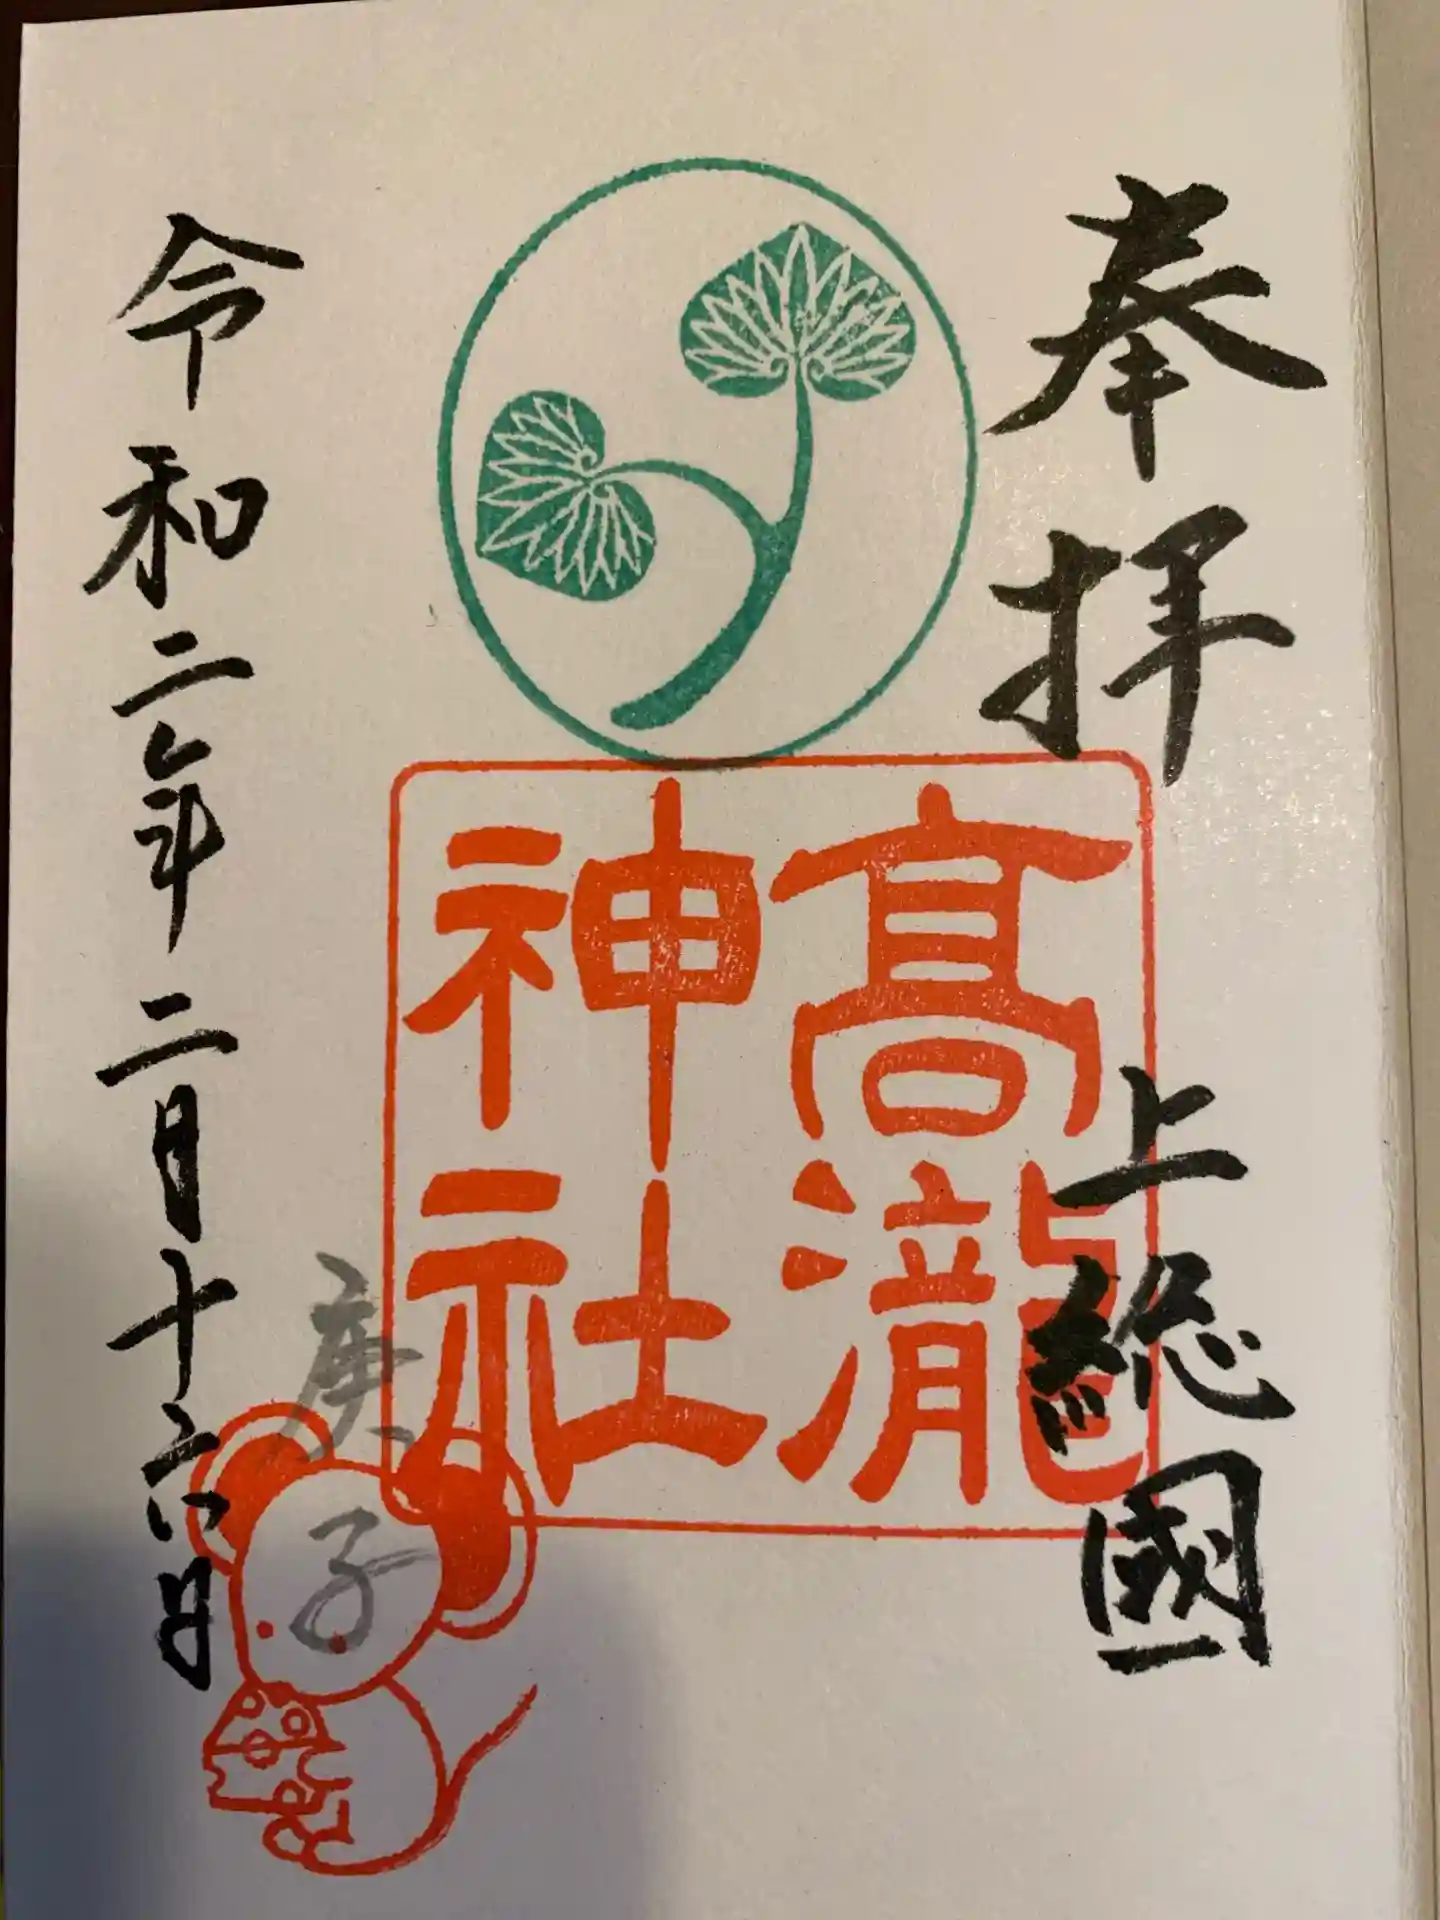 奉拝
上総國
髙瀧
神社
庚子
令和二年二月十六日